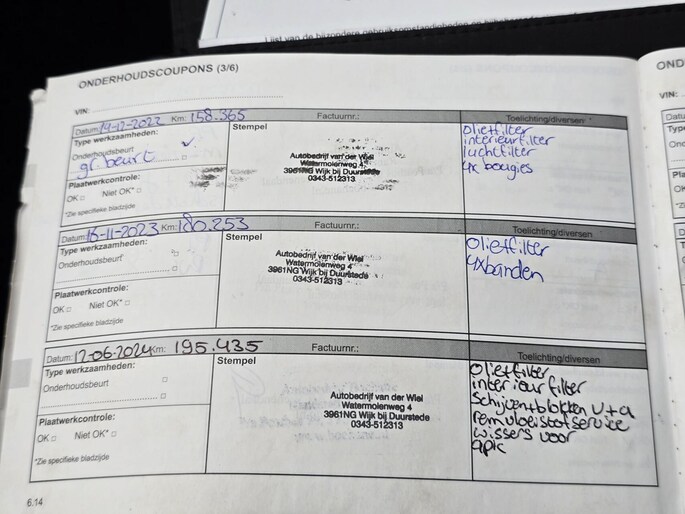 Lijst van de bijzondere gebruiksomstandigheden
ONDERHOUDSCOUPONS (3/6)
VIN:
Datum: 19-12-2023 Km: 158.365 Factuurnr.: Toelichting/diversen *
Type werkzaamheden:
Onderhoudsbeurt
gr. beurt
Plaatwerkcontrole:
OK □ Niet OK* □
*Zie specifieke bladzijde
Stempel
Autobedrijf van der Wiel
Watermolenweg 4
3961NG Wijk bij Duurstede
0343-512313
olietfilter
interieurfilter
luchtfilter
4x bougies
Datum: 16-11-2023 Km: 180.253 Factuurnr.: Toelichting/diversen
Type werkzaamheden:
Onderhoudsbeurt
Plaatwerkcontrole:
OK □ Niet OK* □
*Zie specifieke bladzijde
Stempel
Autobedrijf van der Wiel
Watermolenweg 4
3961NG Wijk bij Duurstede
0343-512313
olietfilter
4xbanden
Datum: 12-06-2024 Km: 195.435 Factuurnr.: Toelichting/diversen
Type werkzaamheden:
Onderhoudsbeurt
Plaatwerkcontrole:
OK □ Niet OK* □
*Zie specifieke bladzijde
Stempel
Autobedrijf van der Wiel
Watermolenweg 4
3961NG Wijk bij Duurstede
0343-512313
olietfilter
interieur filter
schijven+blokken v+a
remvloeistofservice
wissers voor
apk
6.14
OND
VIN: